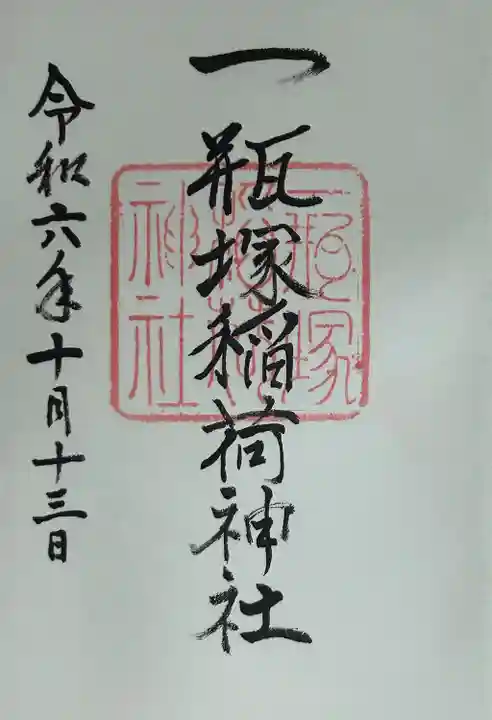 一瓶塚稲荷神社
一瓶塚
稲荷
神社
令和六年十月十三日